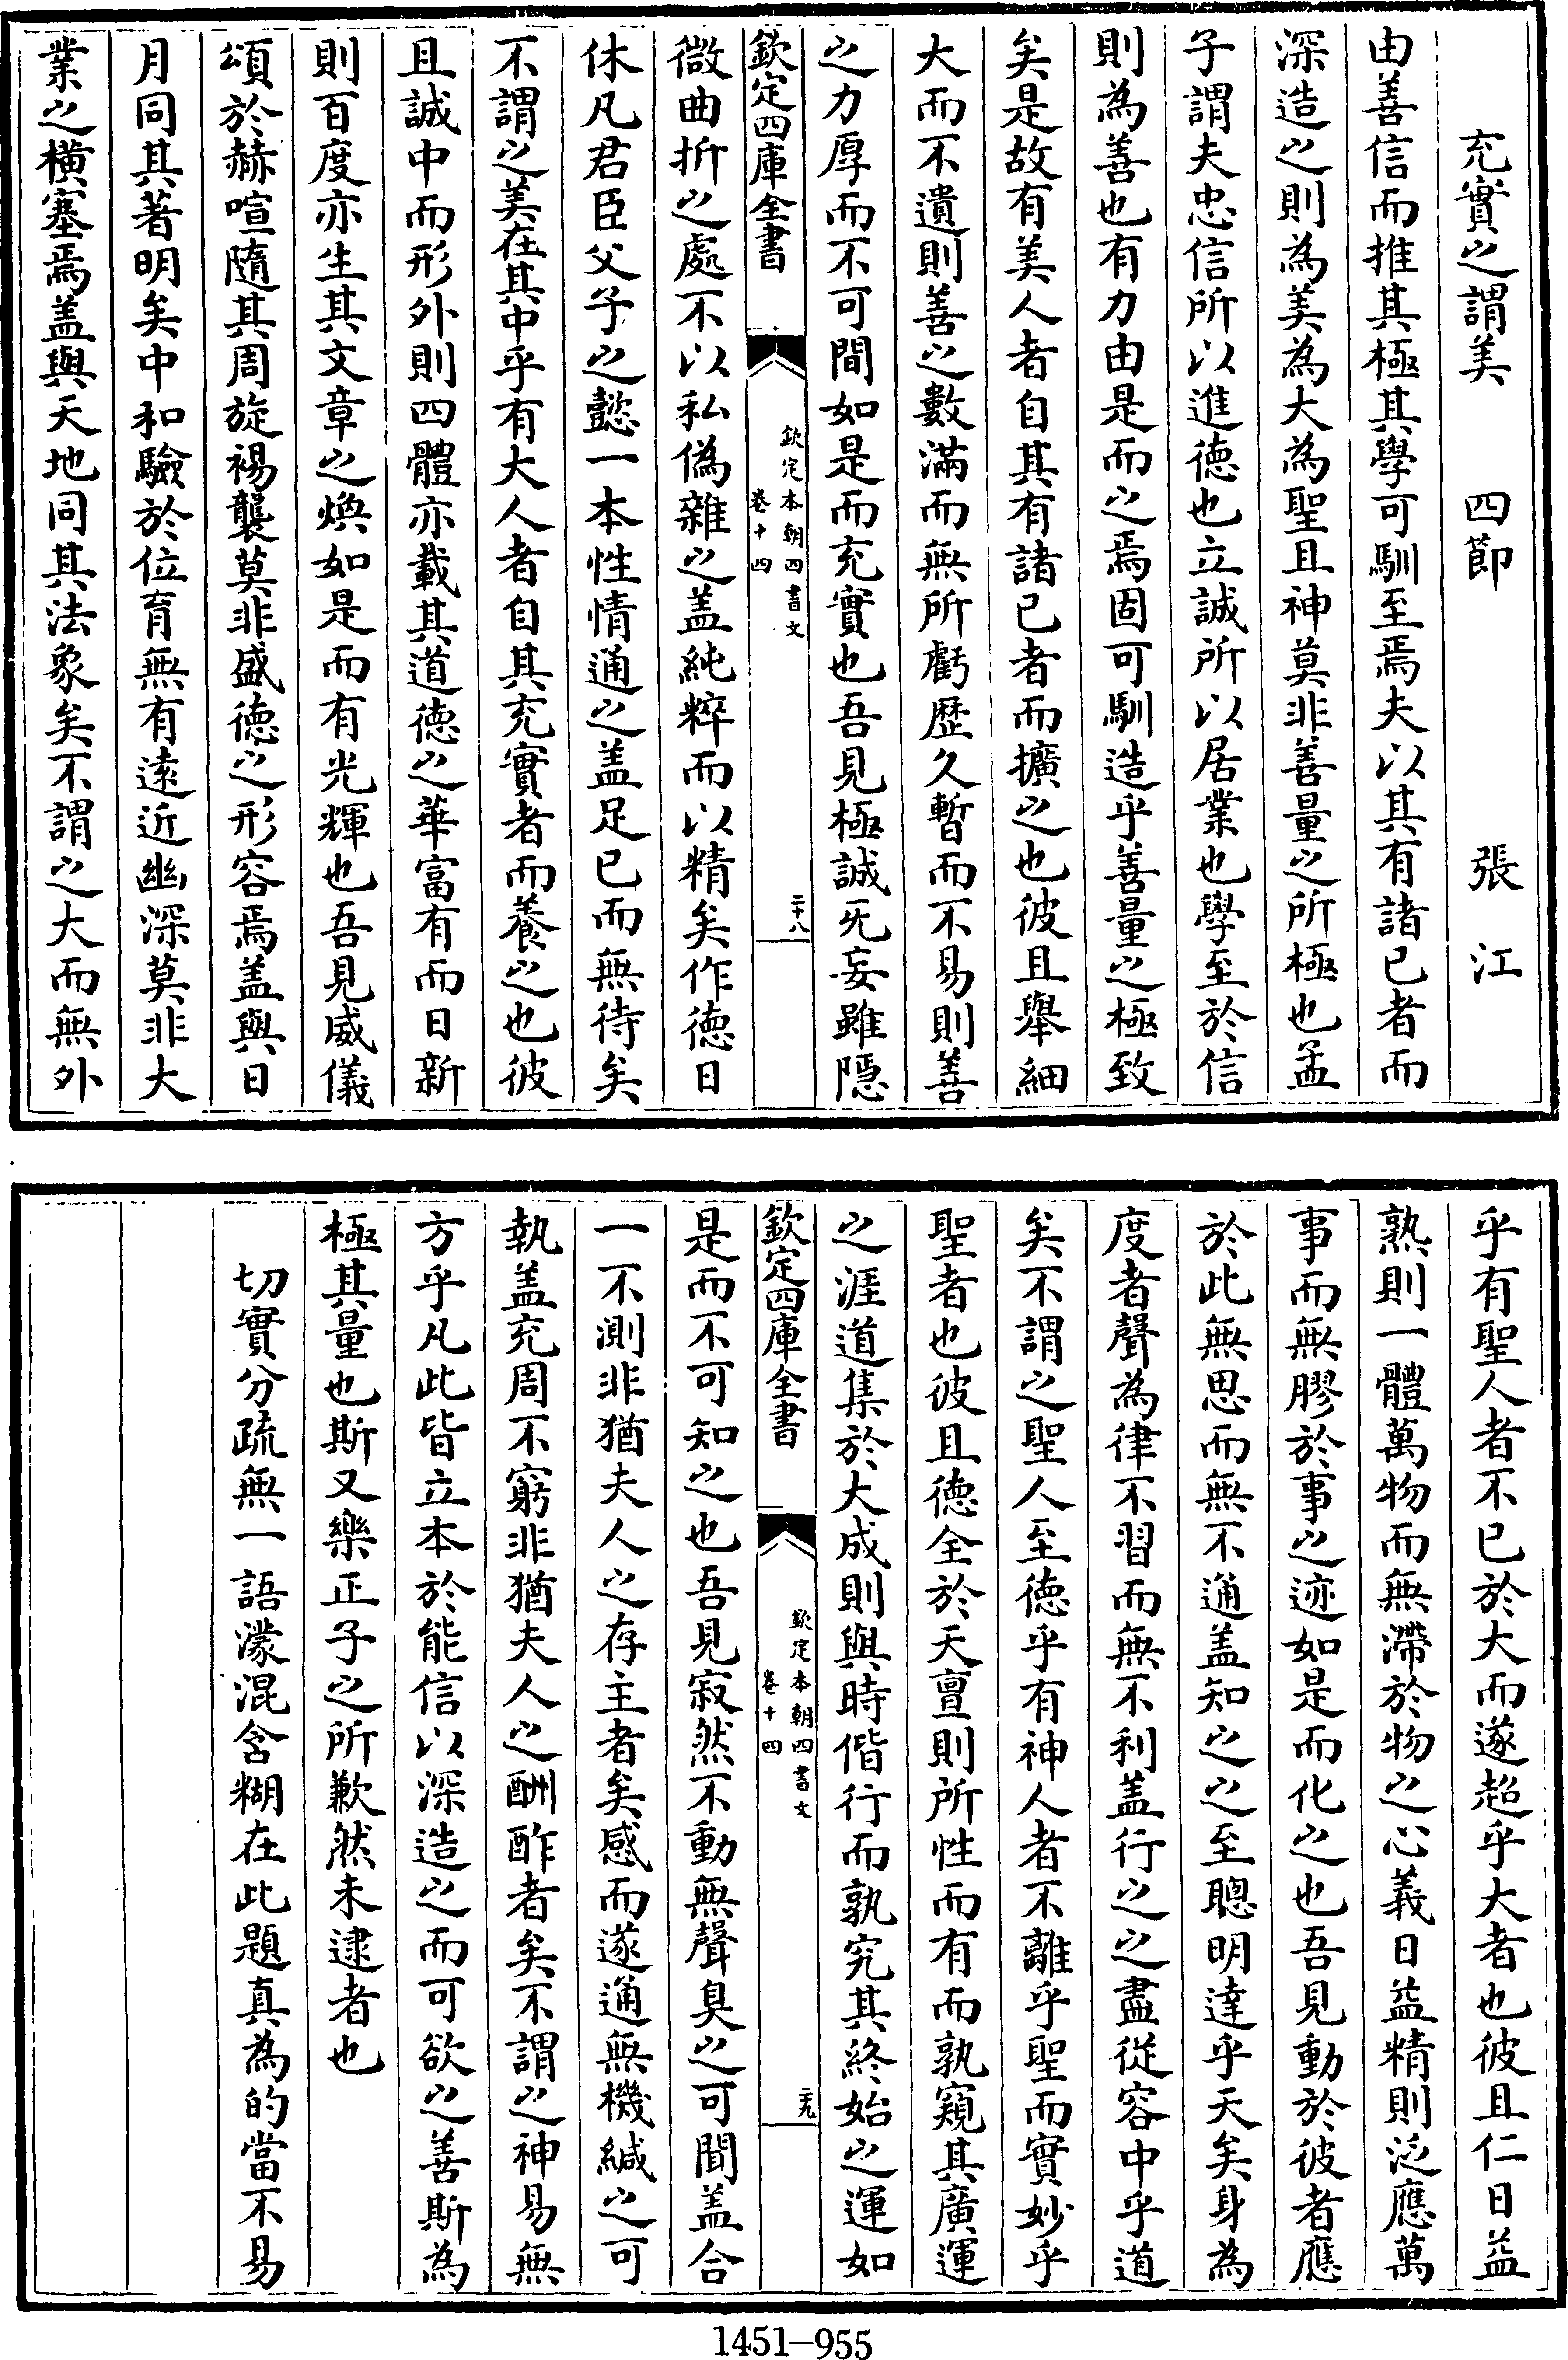 充實之謂美　四節　張江
由善信而推其極其學可馴至焉夫以其有諸已者而
深造之則為美為大為聖且神莫非善量之所極也孟
子謂夫忠信所以進德也立誠所以居業也學至於信
則為善也有力由是而之焉固可馴造乎善量之極致
矣是故有美人者自其有諸已者而擴之也彼且舉細
大而不遺則善之數滿而無所虧歴久暫而不易則善
之力厚而不可間如是而充實也吾見極誠无妄雖隱
欽定四庫全書
欽定本朝四書文
卷十四
二十八
微曲折之處不以私偽雜之盖純粹而以精矣作德日
休凡君臣父子之懿一本性情通之盖足已而無待矣
不謂之美在其中乎有大人者自其充實者而養之也彼
且誠中而形外則四體亦載其道德之華富有而日新
則百度亦生其文章之煥如是而有光輝也吾見威儀
頌於赫喧隨其周旋裼襲莫非盛德之形容焉盖與日
月同其著明矣中和驗於位育無有遠近幽深莫非大
業之橫塞焉盖與天地同其法象矣不謂之大而無外
乎有聖人者不已於大而遂超乎大者也彼且仁日益
熟則一體萬物而無滯於物之心義日益精則泛應萬
事而無膠於事之迹如是而化之也吾見動於彼者應
於此無思而無不通盖知之之至聰明達乎天矣身為
度者聲為律不習而無不利盖行之之盡從容中乎道
矣不謂之聖人至德乎有神人者不離乎聖而實妙乎
聖者也彼且德全於天亶則所性而有而孰窺其廣運
之涯道集於大成則與時偕行而孰究其終始之運如
欽定四庫全書
欽定本朝四書文
卷十四
二十九
是而不可知之也吾見寂然不動無聲臭之可聞盖合
一不測非猶夫人之存主者矣感而遂通無機緘之可
執盖充周不窮非猶夫人之酬酢者矣不謂之神易無
方乎凡此皆立本於能信以深造之而可欲之善斯為
極其量也斯又樂正子之所歉然未逮者也
切實分疏無一語濛混含糊在此題真為的當不易
1451-955